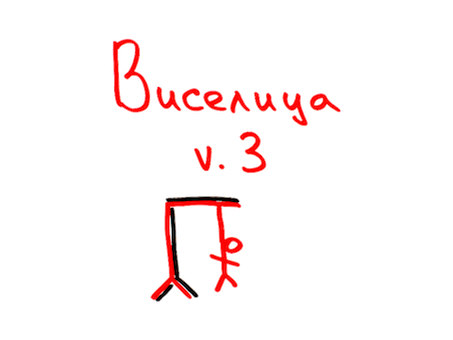 Виселица
v. 3